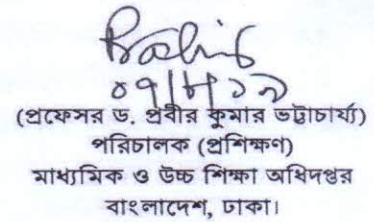 ০৭|৮|১৯
(প্রফেসর ড. প্রবীর কুমার ভট্টাচার্য্য)
পরিচালক (প্রশিক্ষণ)
মাধ্যমিক ও উচ্চ শিক্ষা অধিদপ্তর
বাংলাদেশ, ঢাকা।